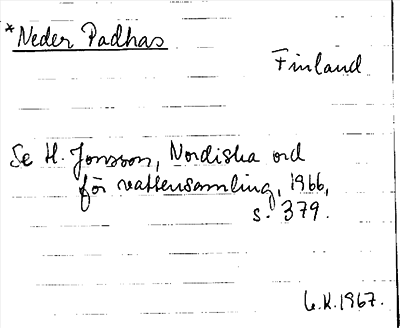 *Neder Padhas
Finland
Se H. Jonsson, Nordiska ord
för vattensamling, 1966,
s. 379.
L.K. 1967.